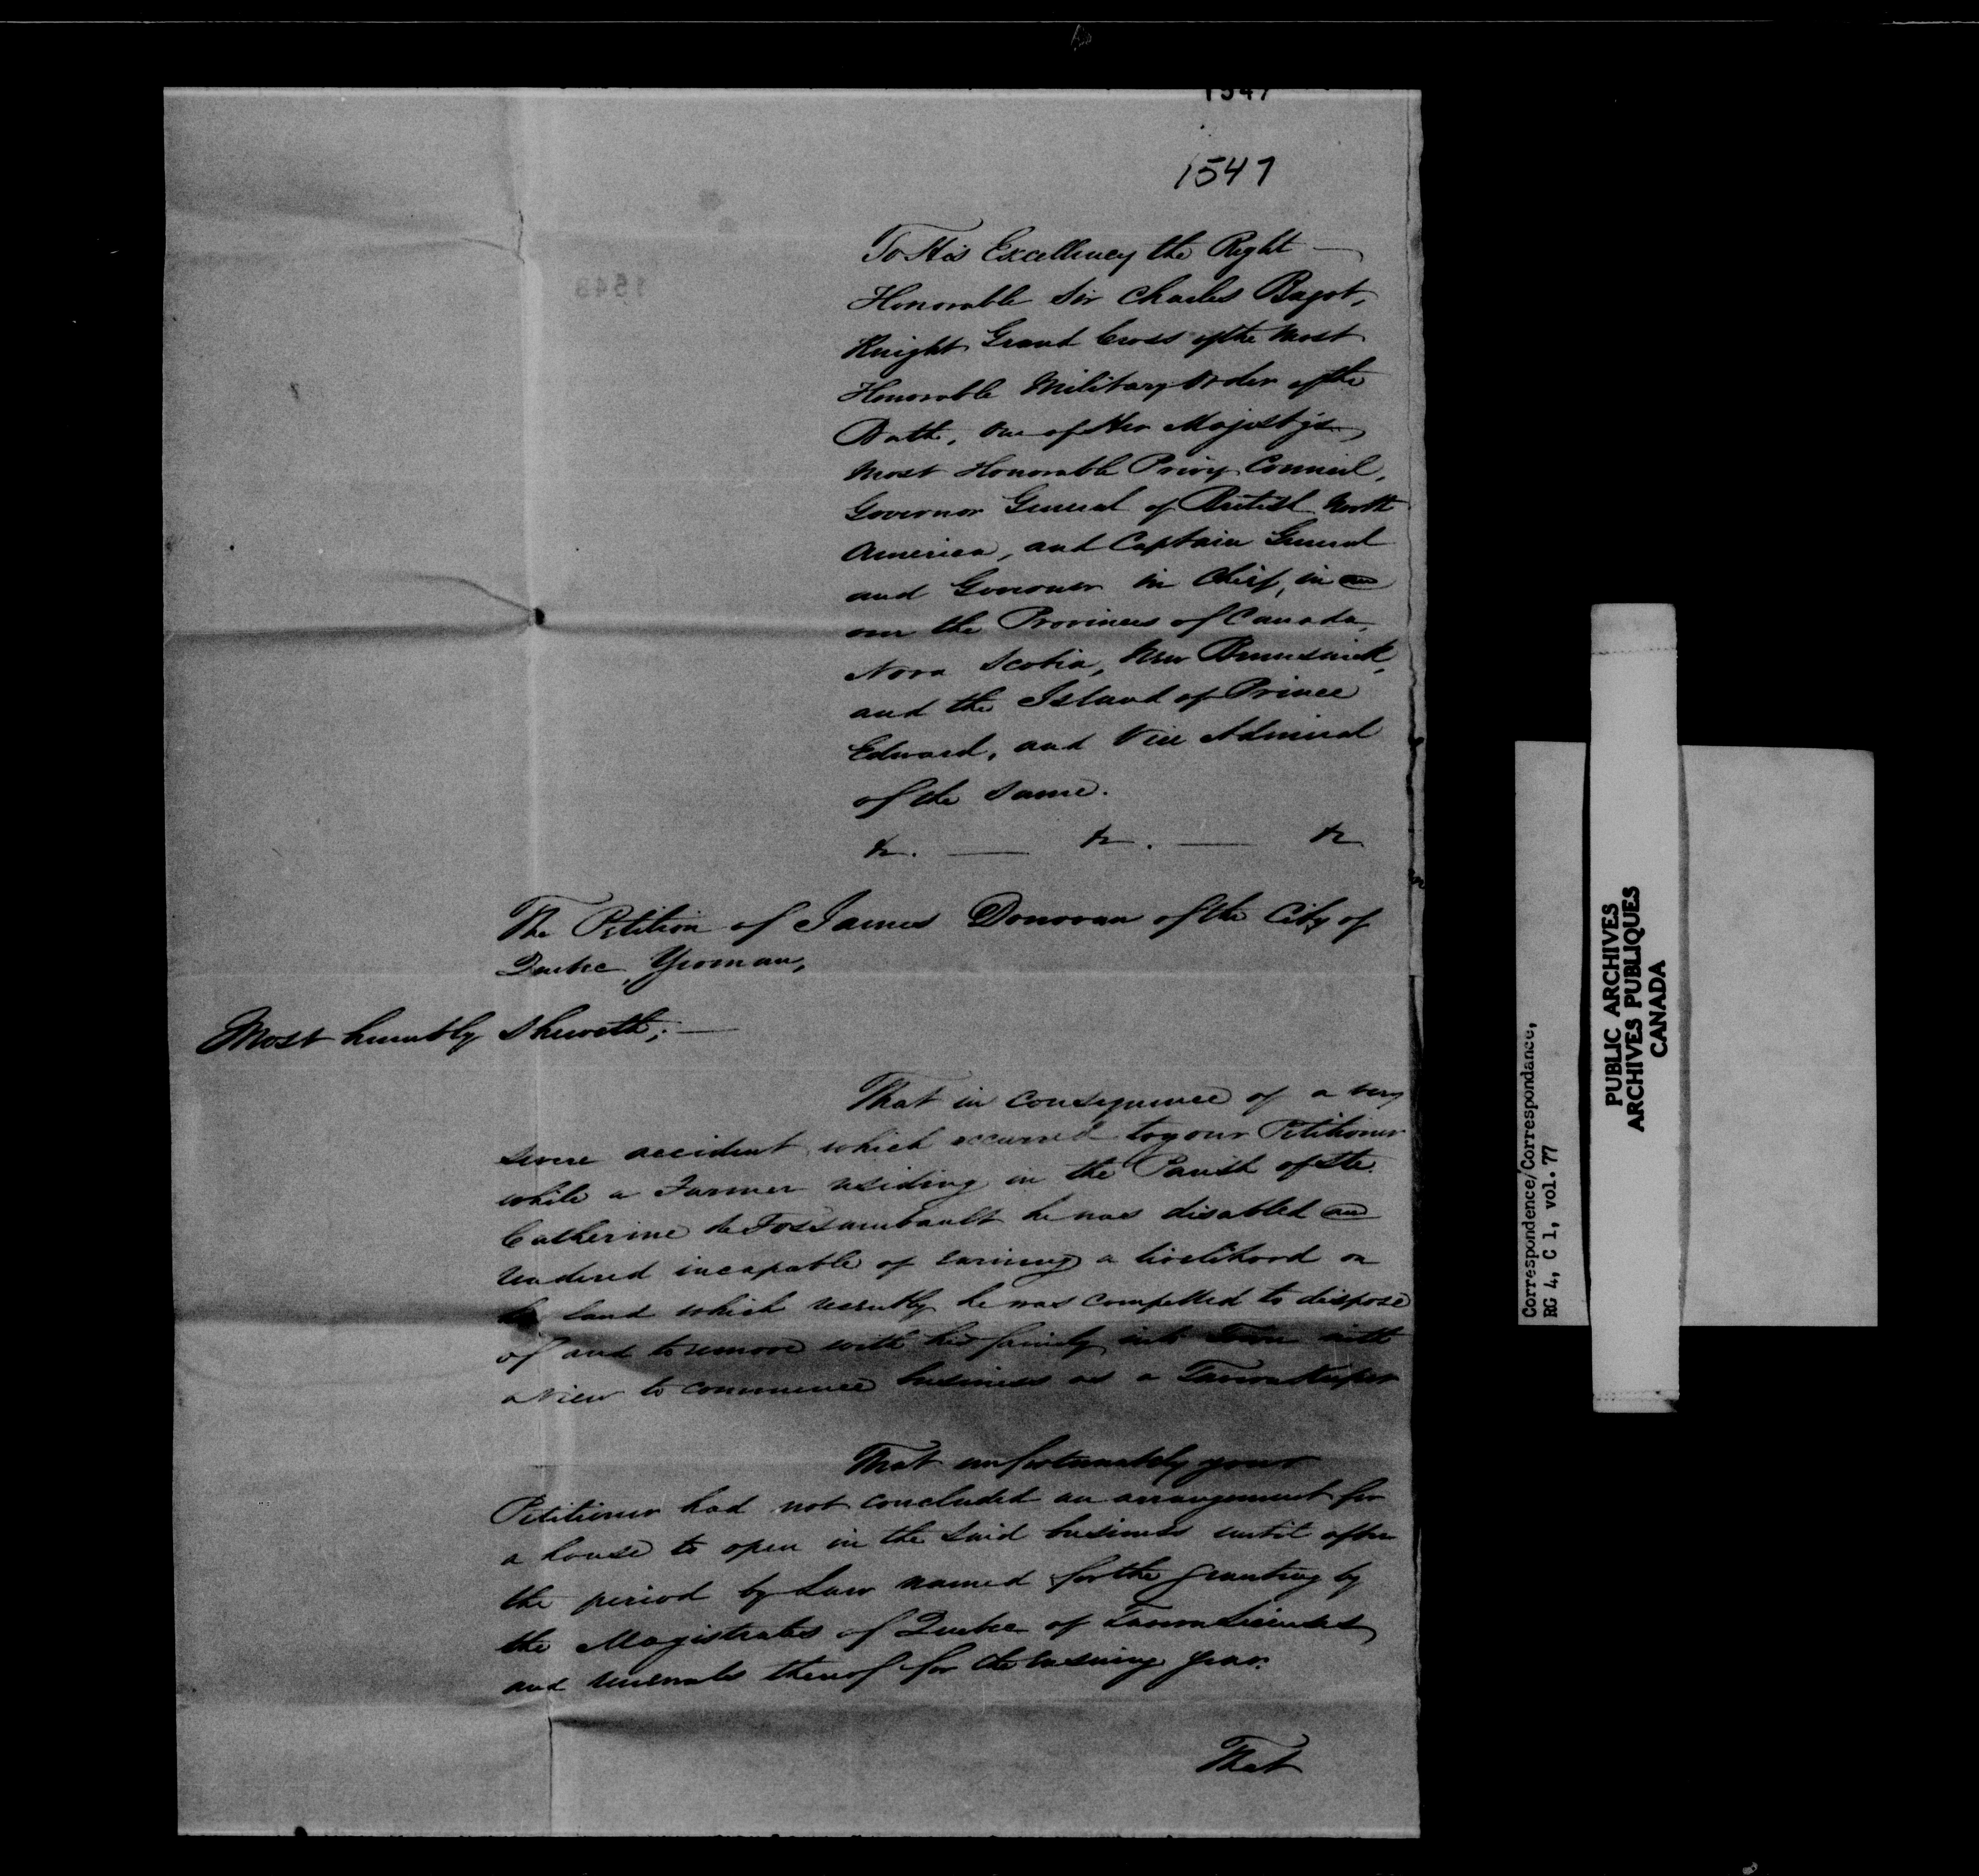 1547
1547
To His Excellency the Right
Honorable Sir Charles Bagot,
Knight Grand Cross of the Most
Honorable Military Order of the
Bath, One of Her Majesty's
Most Honorable Privy Council,
Governor General of British North
America, and Captain General
and Governor in Chief, in an
over the Provinces of Canada,
Nova Scotia, New Brunswick,
and the Island of Prince
Edward, and Vice Admiral
of the Same.
&c. — &c. — &c
The Petition of James Donovan of the City of
Quebec, Yeoman,
Most humbly Sheweth; —
That in consequence of a very
severe accident which occurred to your Petitioner
while a Farmer residing in the Parish of Ste
Catherine de Fossambault he was disabled an
rendered incapable of earning a livelihood on
land which recently he was compelled to dispose
of and to remove with his family into Town with
a view to commence business as a Tavern Keeper
That unfortunately your
Petitioner had not concluded an arrangement for
a house to open in the said business until after
the period by Law named for the granting by
the Magistrates of Quebec of Tavern Licenses
and renewals thereof for the ensuing year.
That
Correspondence/Correspondance,
RG 4, C 1, vol. 77
PUBLIC ARCHIVES
ARCHIVES PUBLIQUES
CANADA